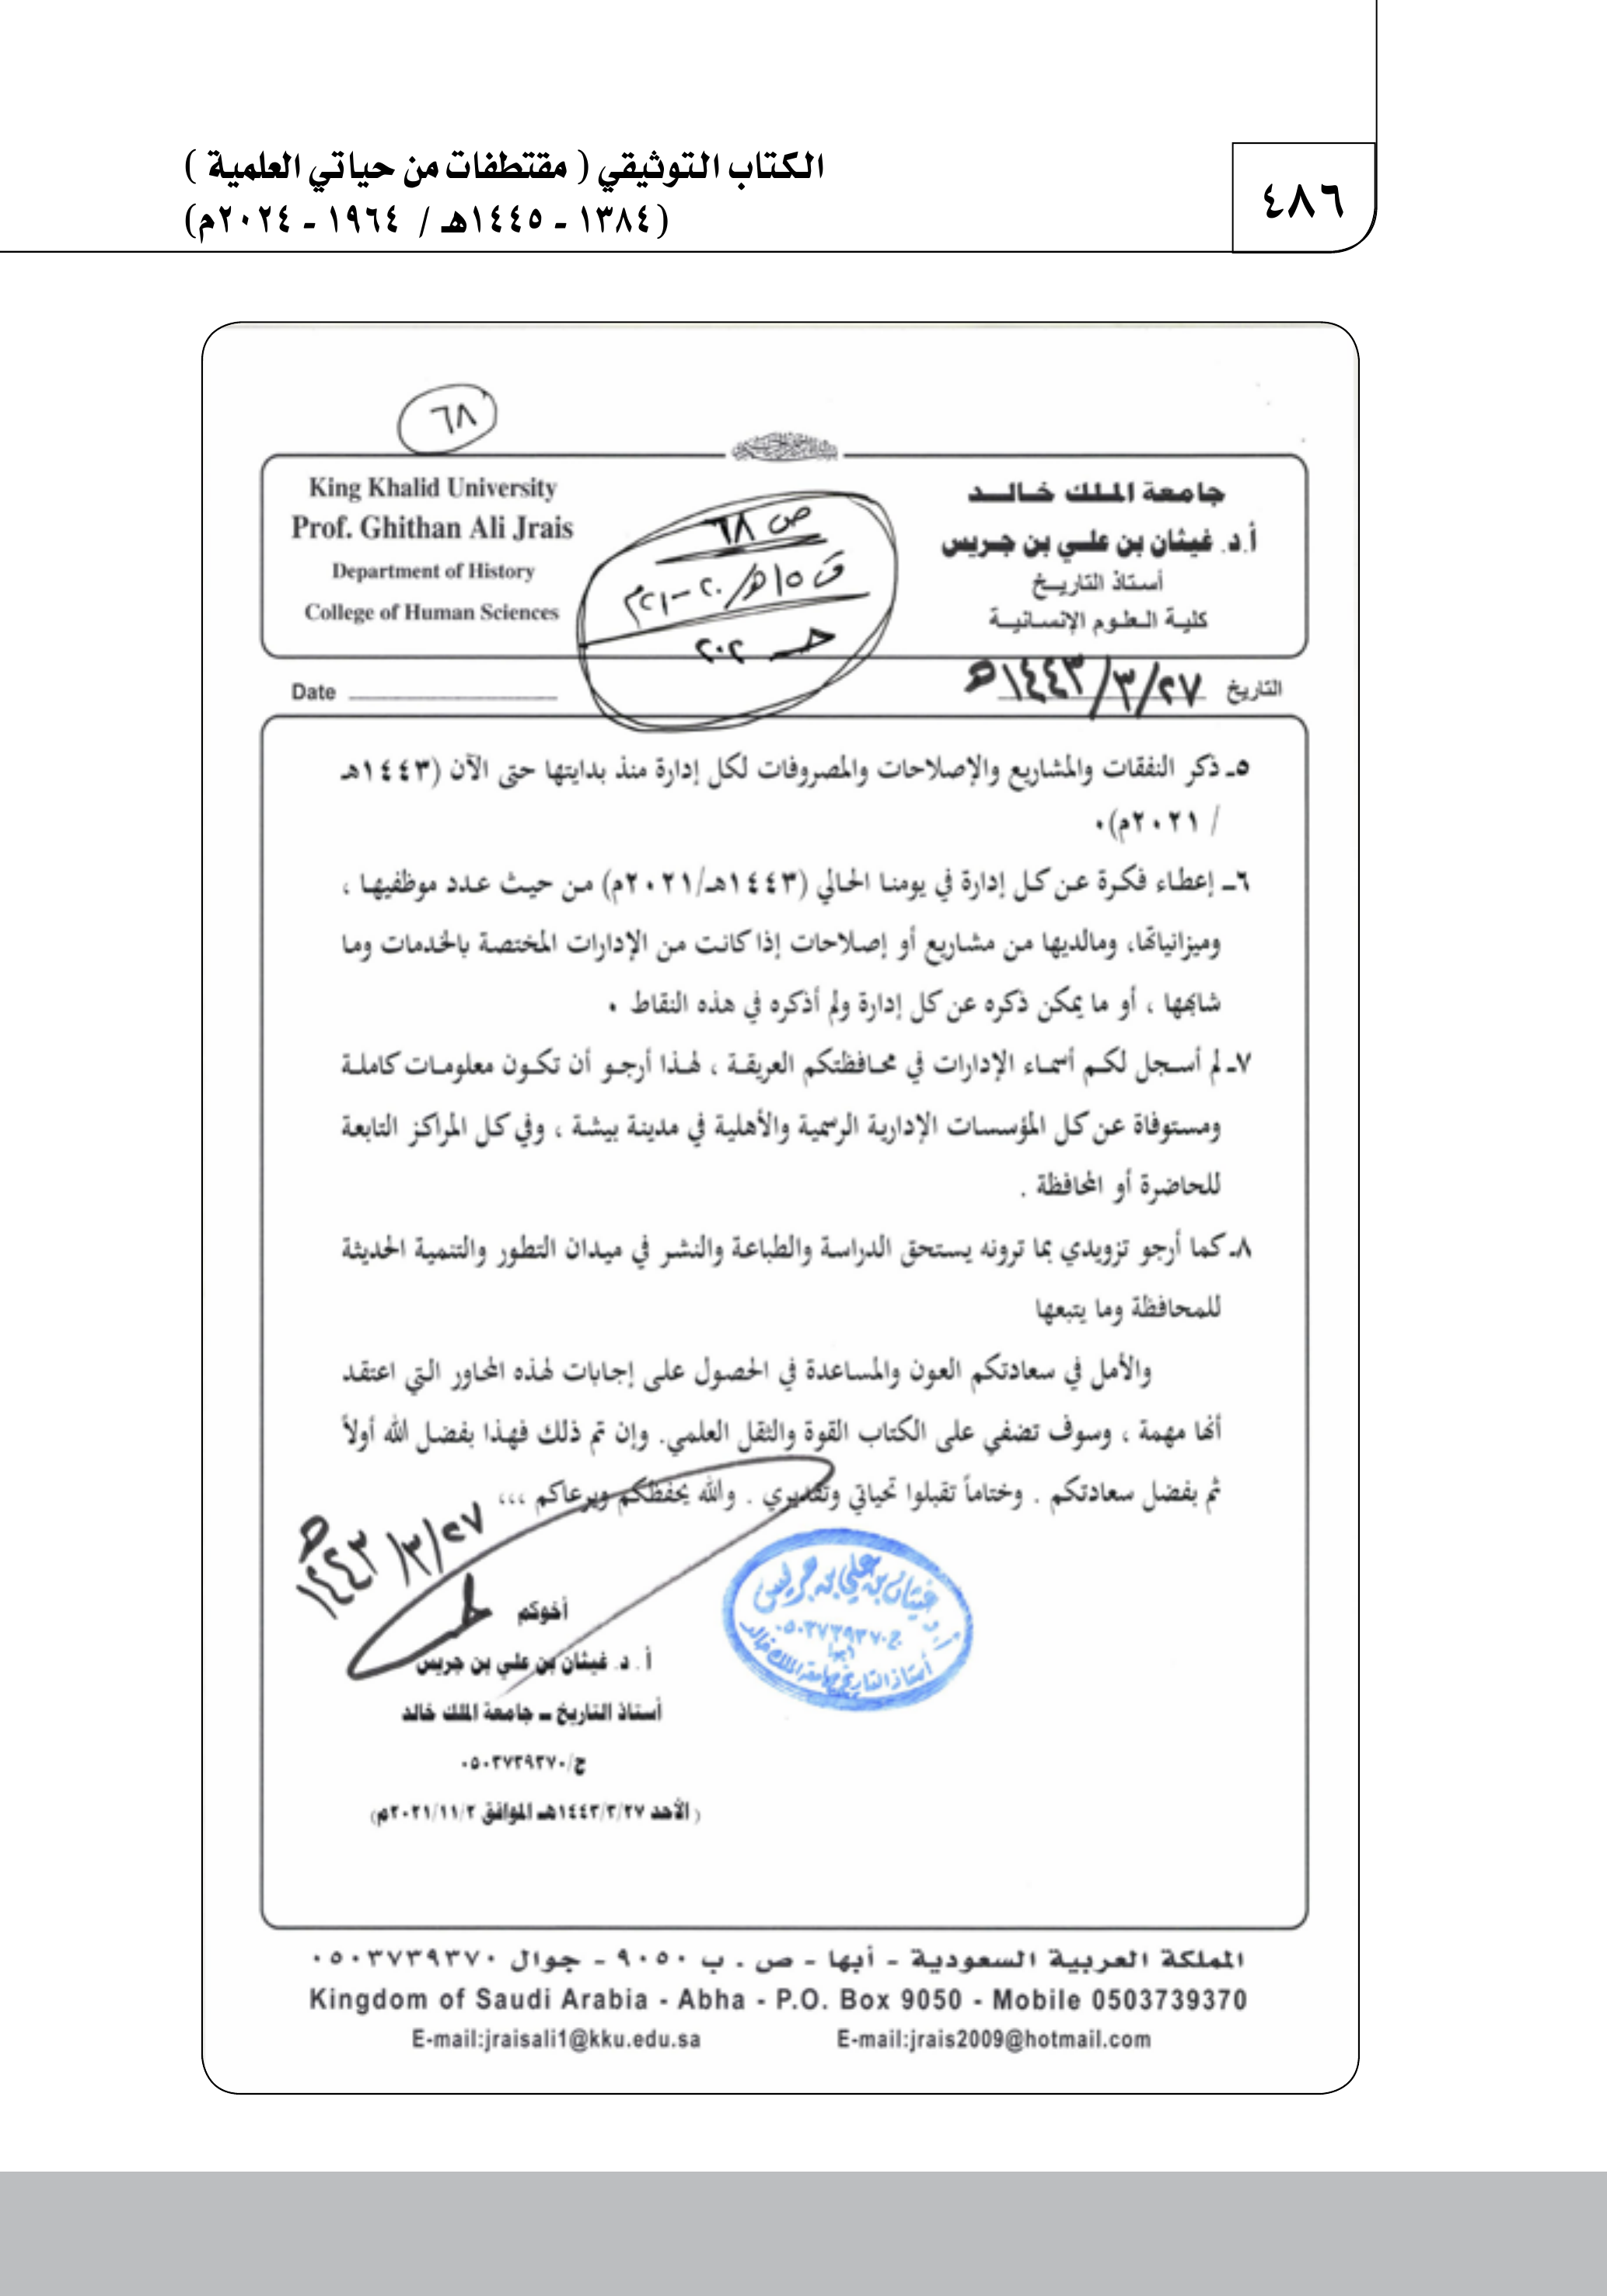 ٤٨٦
الكتاب التوثيقي ( مقتطفات من حياتي العلمية )
(١٣٨٤ - ١٤٤٥هـ / ١٩٦٤ - ٢٠٢٤م)
٦٨
جامعة الملك خالد
أ.د. غيثان بن علي بن جريس
أستاذ التاريخ
كلية العلوم الإنسانية
King Khalid University
Prof. Ghithan Ali Jrais
Department of History
College of Human Sciences
ص ٦٨
ق ١٥هـ/٢٠-٢١م
حـ ٢٠٢
التاريخ ١٤٤٣/٣/٢٧هـ
Date
٥ـ ذكر النفقات والمشاريع والإصلاحات والمصروفات لكل إدارة منذ بدايتها حتى الآن (١٤٤٣هـ
/ ٢٠٢١م).
٦ـ إعطاء فكرة عن كل إدارة في يومنا الحالي (١٤٤٣هـ/٢٠٢١م) من حيث عدد موظفيها ،
وميزانياتها، ومالديها من مشاريع أو إصلاحات إذا كانت من الإدارات المختصة بالخدمات وما
شابهها ، أو ما يمكن ذكره عن كل إدارة ولم أذكره في هذه النقاط .
٧ـ لم أسجل لكم أسماء الإدارات في محافظتكم العريقة ، لهذا أرجو أن تكون معلومات كاملة
ومستوفاة عن كل المؤسسات الإدارية الرسمية والأهلية في مدينة بيشة ، وفي كل المراكز التابعة
للحاضرة أو المحافظة .
٨ـ كما أرجو تزويدي بما ترونه يستحق الدراسة والطباعة والنشر في ميدان التطور والتنمية الحديثة
للمحافظة وما يتبعها
والأمل في سعادتكم العون والمساعدة في الحصول على إجابات لهذه المحاور التي اعتقد
أنها مهمة ، وسوف تضفي على الكتاب القوة والثقل العلمي. وإن تم ذلك فهذا بفضل الله أولاً
ثم بفضل سعادتكم . وختاماً تقبلوا تحياتي وتقديري . والله يحفظكم ويرعاكم ،،،
١٤٤٣/٣/٢٧هـ
أخوكم
أ . د. غيثان بن علي بن جريس
أستاذ التاريخ ــ جامعة الملك خالد
ج/٠٥٠٣٧٣٩٣٧٠
( الأحد ١٤٤٣/٣/٢٧هـ الموافق ٢٠٢١/١١/٢م)
أ.د
غيثان بن علي بن جريس
ج ٠٥٠٣٧٣٩٣٧٠
أبها
أستاذ التاريخ بجامعة الملك خالد
المملكة العربية السعودية - أبها - ص . ب ٩٠٥٠ - جوال ٠٥٠٣٧٣٩٣٧٠
Kingdom of Saudi Arabia - Abha - P.O. Box 9050 - Mobile 0503739370
E-mail:jraisali1@kku.edu.sa E-mail:jrais2009@hotmail.com